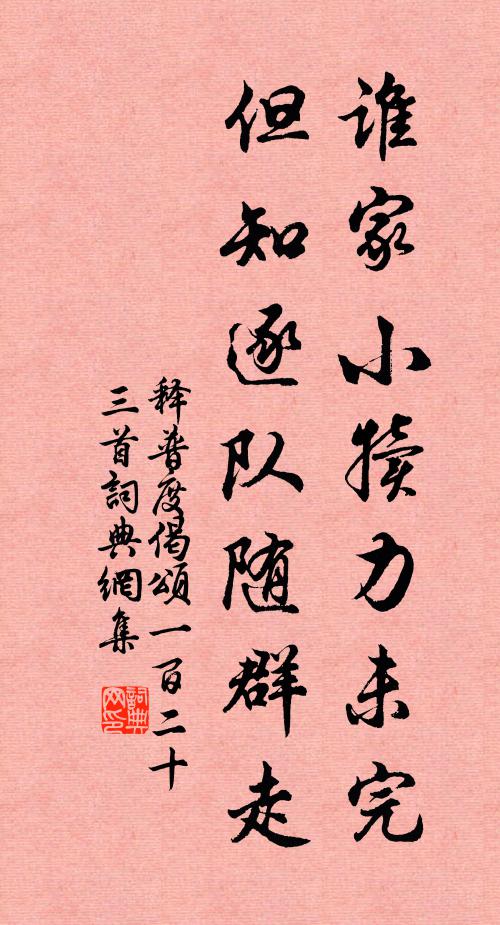 谁家小犊力未完
但知逐队随群走
释普度偈頌一百二十
三首詞典網集
詞典
网印